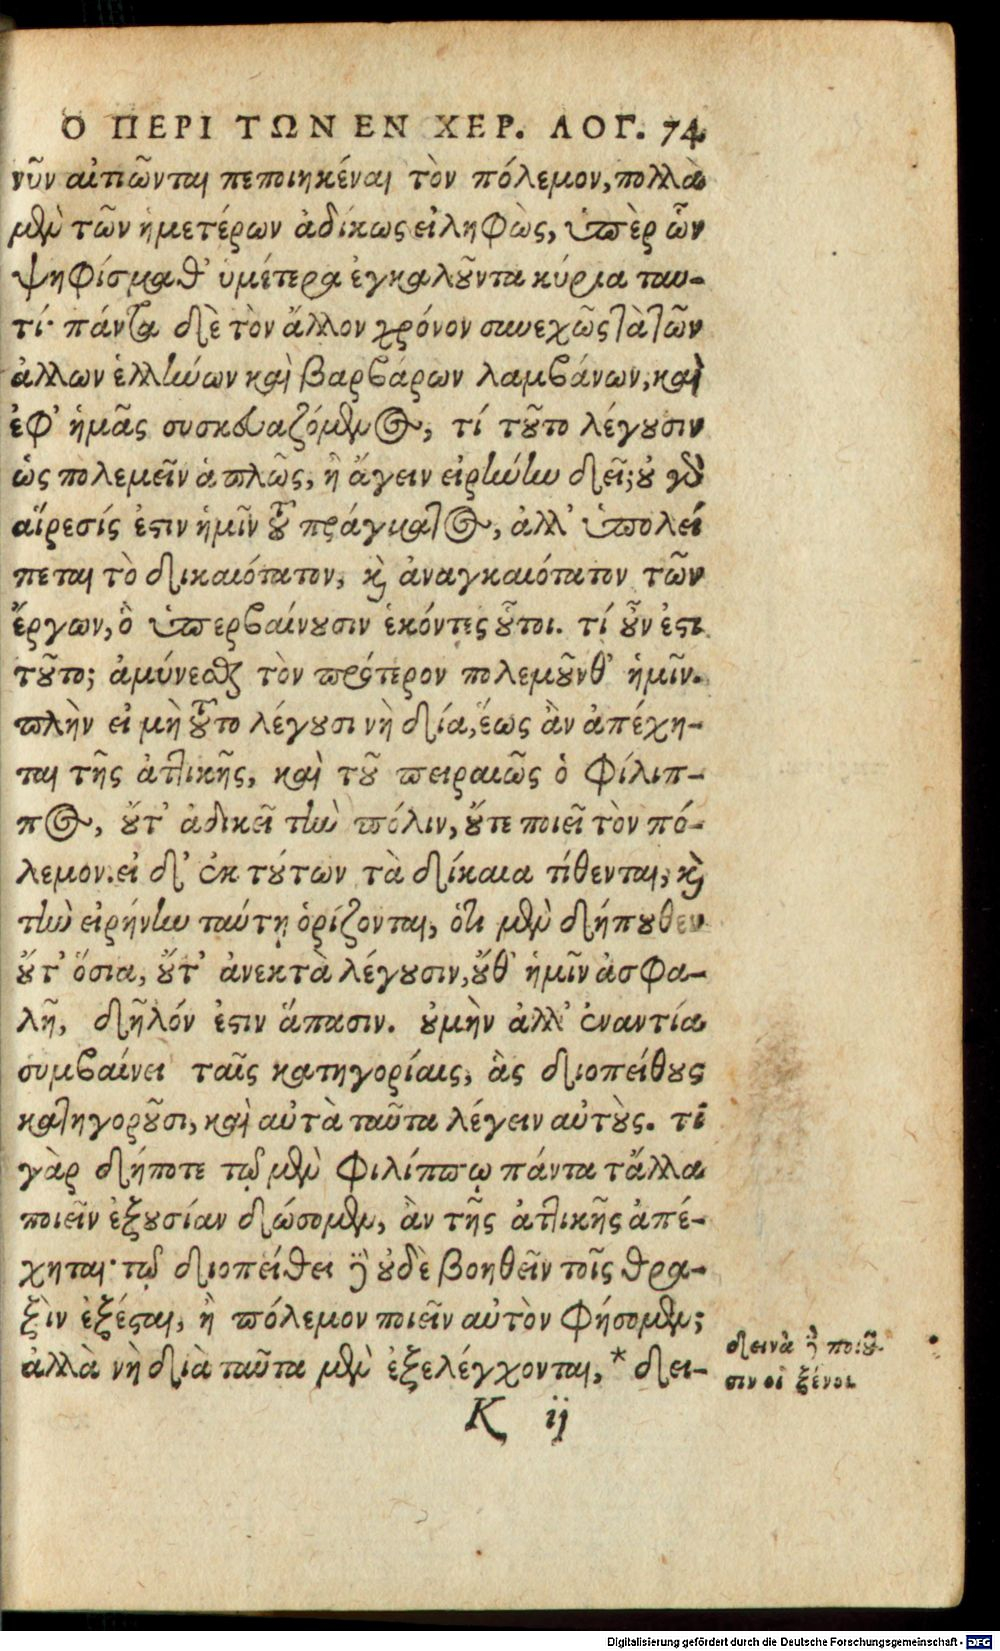 Ο ΠΕΡΙ ΤΩΝ ΕΝ ΧΕΡ. ΛΟΓ. 74
νῦν αἰτιῶνται πεποιηκέναι τὸν πόλεμον, πολλὰ
μὲν τῶν ἡμετέρων ἀδίκως εἰληφὼς, ὑπὲρ ὧν
ψηφίσμαθ' ὑμέτερα ἐγκαλοῦντα κύρια ταυ-
τί· πάντα δὲ τὸν ἄλλον χρόνον συνεχῶς τὰ τῶν
ἄλλων ἑλλήνων καὶ βαρβάρων λαμβάνων, καὶ
ἐφ' ἡμᾶς συσκευαζόμενος, τί τοῦτο λέγουσιν
ὡς πολεμεῖν ἁπλῶς, ἢ ἄγειν εἰρήνην δεῖ; οὐ γὰρ
αἵρεσίς ἐστιν ἡμῖν τοῦ πράγματος, ἀλλ' ὑπολεί
πεται τὸ δικαιότατον, καὶ ἀναγκαιότατον τῶν
ἔργων, ὃ ὑπερβαίνουσιν ἑκόντες οὗτοι. τί οὖν ἐστι
τοῦτο; ἀμύνεσθαι τὸν πρότερον πολεμοῦνθ' ἡμῖν.
πλὴν εἰ μὴ τοῦτο λέγουσι νὴ δία, ἕως ἂν ἀπέχη-
ται τῆς ἀττικῆς, καὶ τοῦ πειραιῶς ὁ Φίλιπ-
πος, οὔτ' ἀδικεῖ τὴν πόλιν, οὔτε ποιεῖ τὸν πό-
λεμον. εἰ δ' ἐκ τούτων τὰ δίκαια τίθενται, καὶ
τὴν εἰρήνην ταύτῃ ὁρίζονται, ὅτι μὲν δήπουθεν
οὔτ' ὅσια, οὔτ' ἀνεκτὰ λέγουσιν, οὔθ' ἡμῖν ἀσφα-
λῆ, δῆλόν ἐστιν ἅπασιν. οὐ μὴν ἀλλ' ἐναντία
συμβαίνει ταῖς κατηγορίαις, ἃς διοπείθους
κατηγοροῦσι, καὶ αὐτὰ ταῦτα λέγειν αὐτούς. τί
γὰρ δήποτε τῷ μὲν Φιλίππῳ πάντα τἄλλα
ποιεῖν ἐξουσίαν δώσομεν, ἂν τῆς ἀττικῆς ἀπέ-
χηται· τῷ διοπείθει δ' οὐδὲ βοηθεῖν τοῖς θρα-
ξὶν ἐξέσται, ἢ πόλεμον ποιεῖν αὐτὸν φήσομεν;
ἀλλὰ νὴ δία ταῦτα μὲν ἐξελέγχονται, * δει-
δεινὰ δ' ποιοῦ-
σιν οἱ ξένοι
K ij
Digitalisierung gefördert durch die Deutsche Forschungsgemeinschaft - DFG